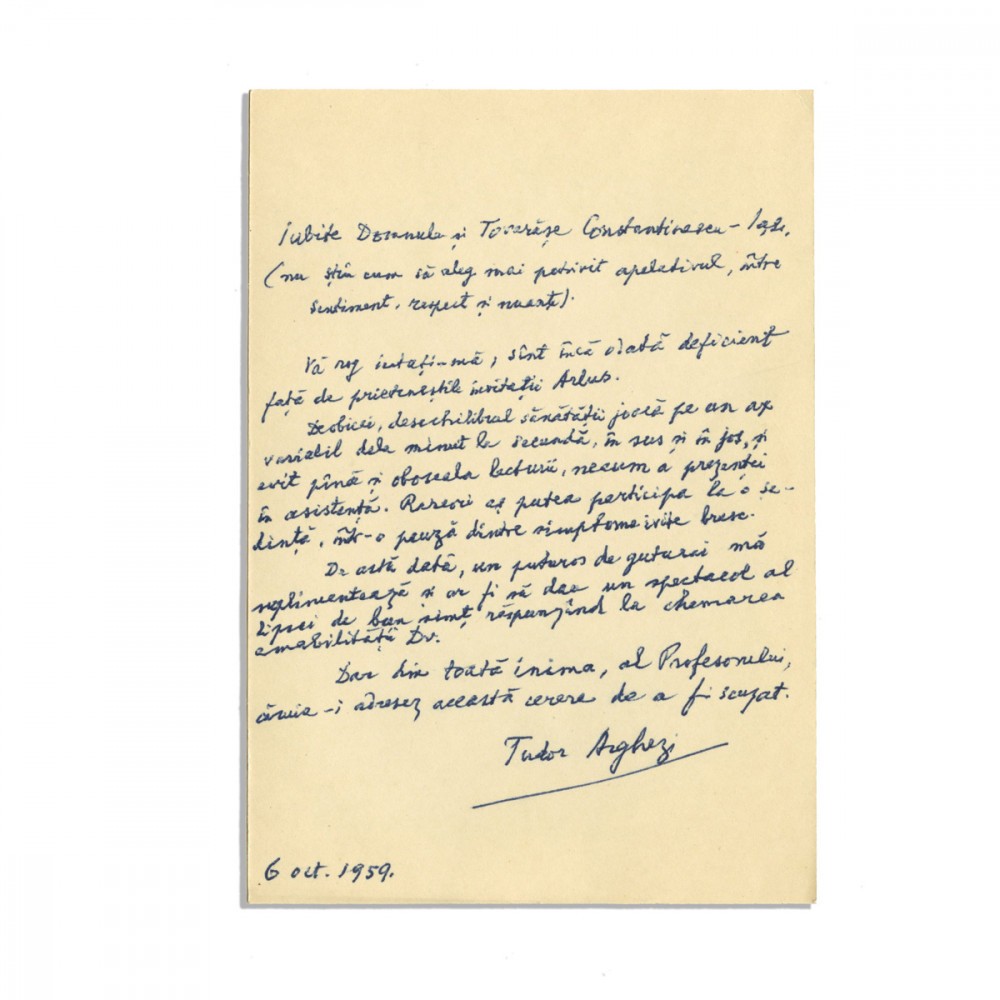 Iubite Domnule și Tovarășe Constantinescu-Iași,
(nu știu cum să aleg mai potrivit apelativul, între
sentiment, respect și nuanțe).
Vă rog iertați-mă, sînt încă odată deficient
față de prieteneștile invitații Arlus.
Deobicei, desechilibrul sănătății joacă pe un ax
variabil dela minut la secundă, în sus și în jos, și
evit pînă și oboseala lecturii, necum a prezenței
în asistență. Rareori aș putea participa la o șe-
dință, într-o pauză dintre simptome ivite brusc.
De astă dată, un puturos de guturai mă
suplimentează și ar fi să dau un spectacol al
lipsei de bun simț, răspunzînd la chemarea
amabilității Dv.
Dar din toată inima, al Profesorului,
căruia-i adresez această cerere de a fi scuzat.
Tudor Arghezi
6 oct. 1959.